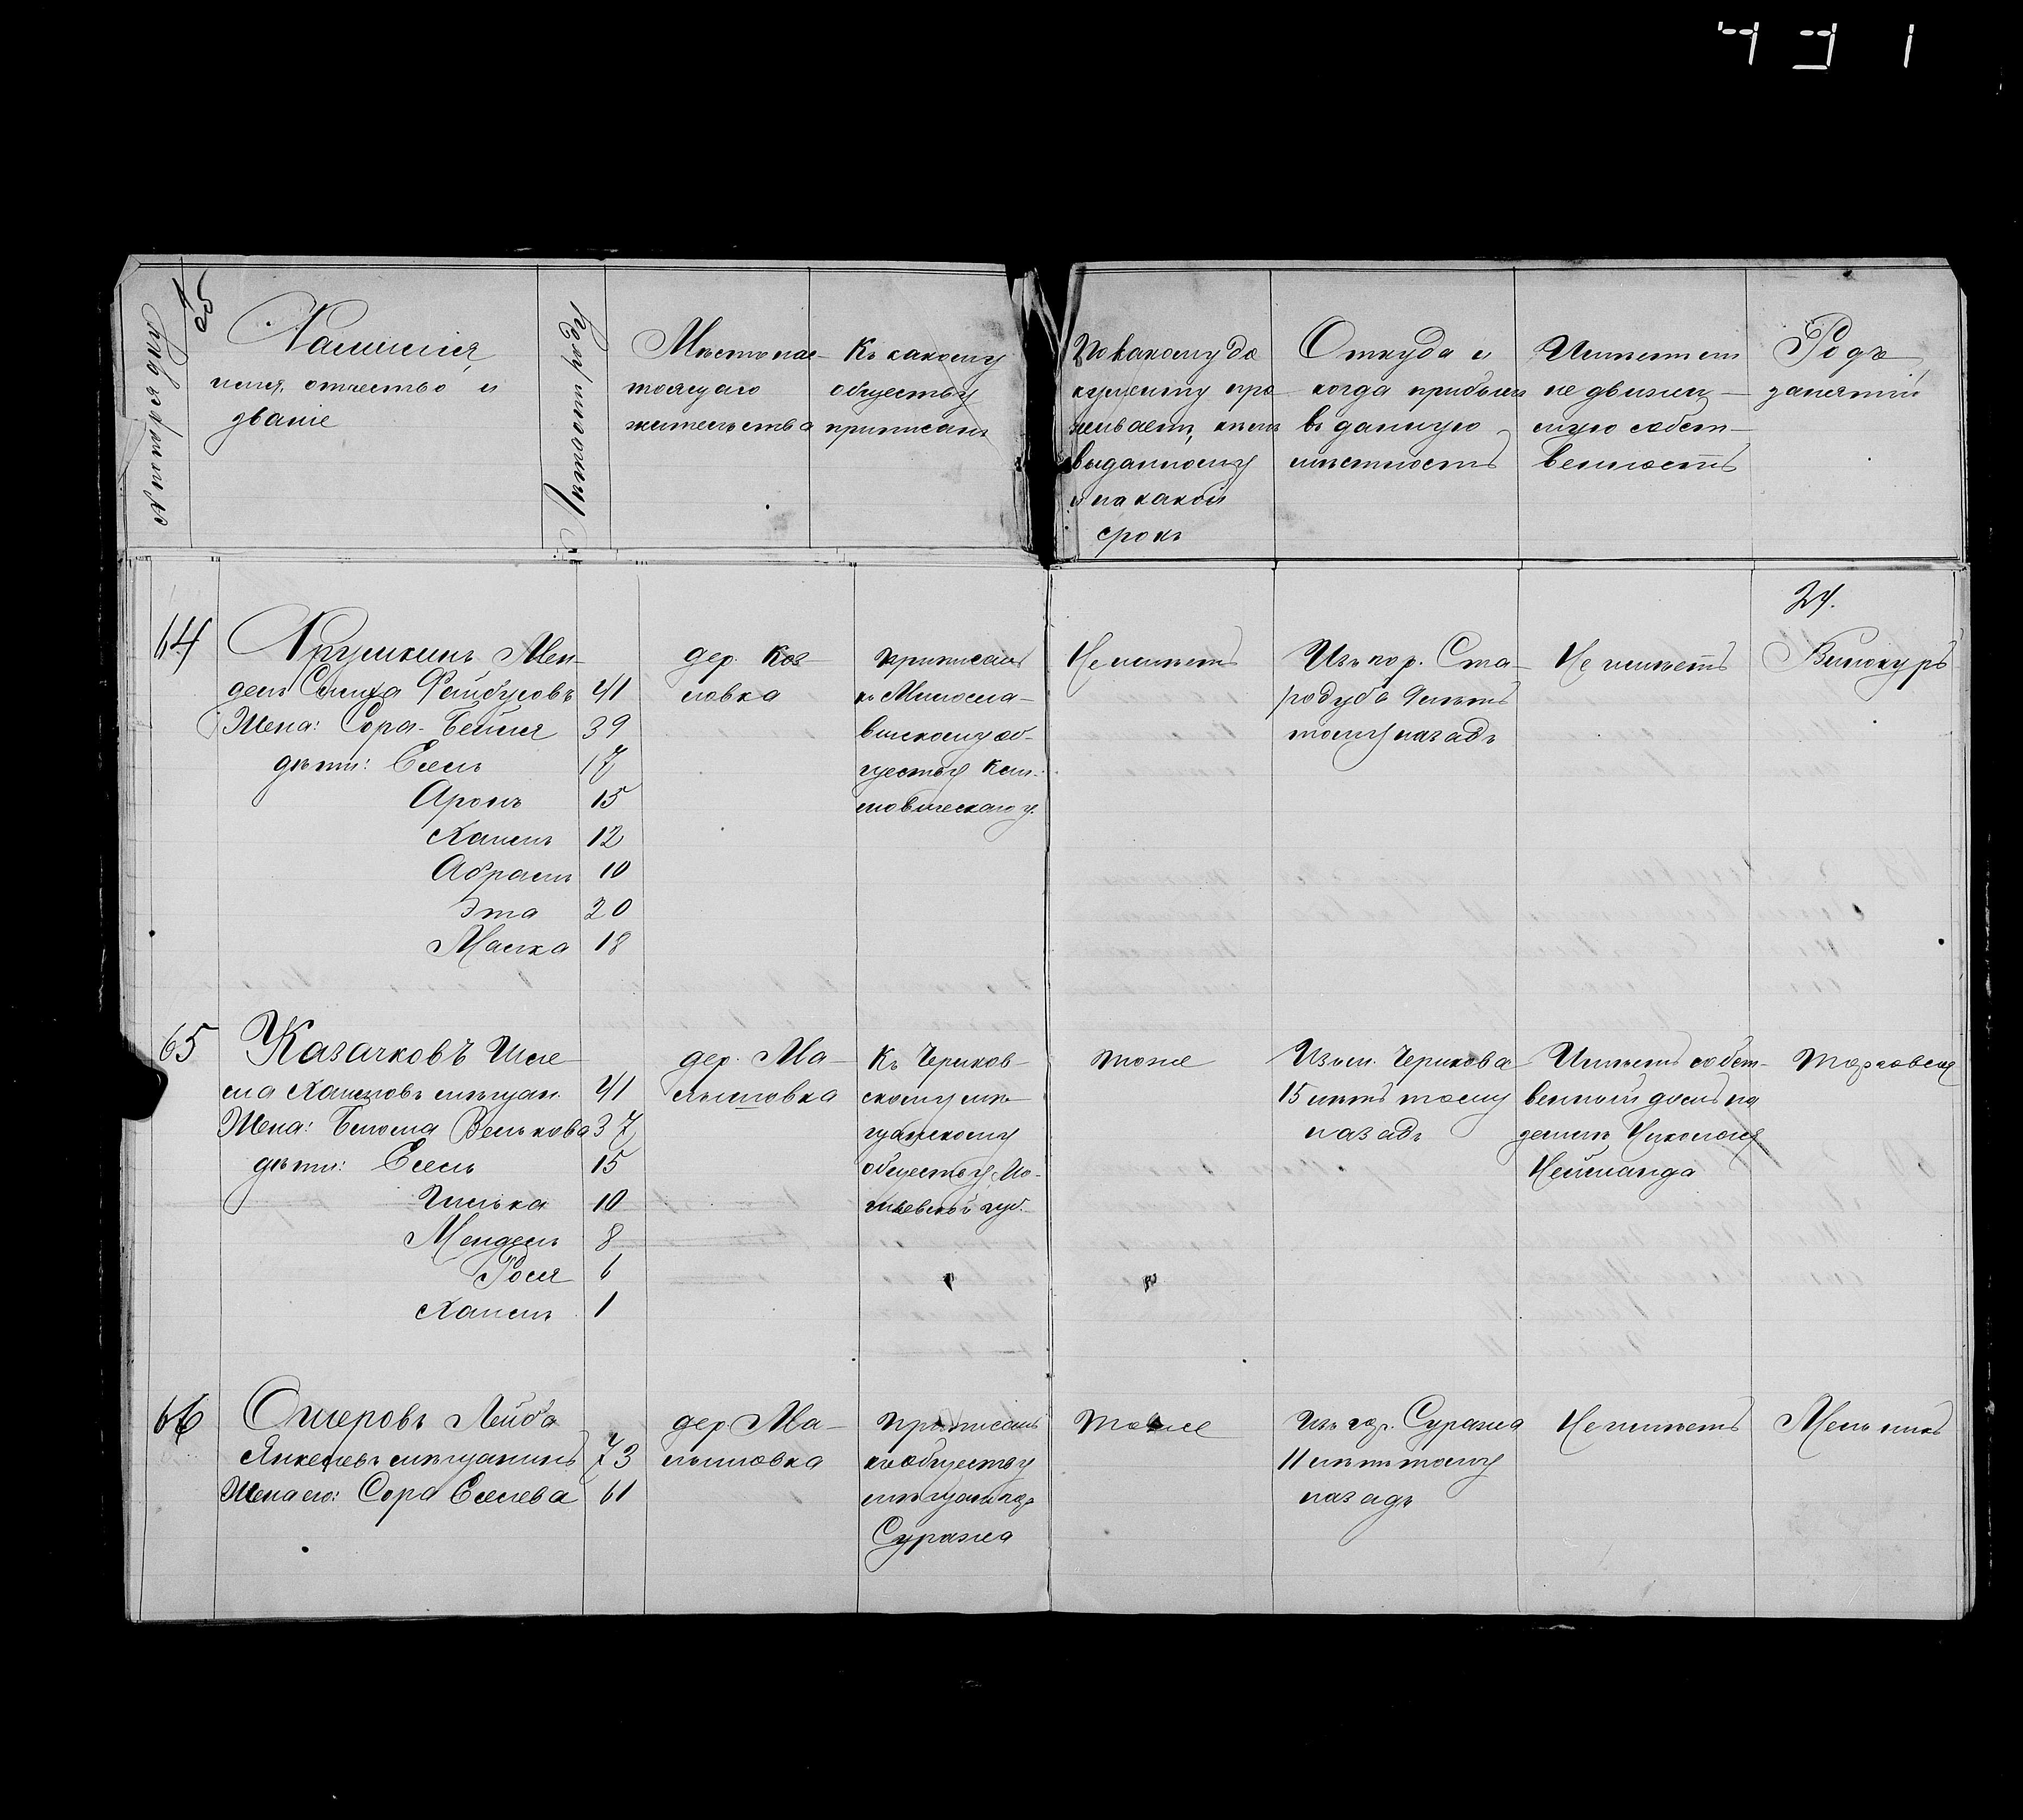 № по порядку
Фамилія,
имя, отчество и
званіе
Лѣта отъ роду
Мѣсто нас-
тоящаго
жительства
Къ какому
обществу
приписанъ
По какому до
кументу про
живаетъ, кѣмъ
выданному
и на какой
срокъ
Откуда и
когда прибылъ
въ данную
мѣстность
Имѣетъ ли
не движи-
мую собст-
венность
Родъ
занятій
24.
64
Мен-
дель Симха Файбусовъ 41
Жена: Сора-Бейля 39
дѣти: Есель 17
Аронъ 15
Хаимъ 12
Абрамъ 10
Эта 20
Маска 18
дер. Коз-
ловка
приписанъ
къ Милосла-
вискому об-
ществу Кли-
мовическаго у.
Не имѣетъ
Изъ гор. Ста-
родуба 9 лѣтъ
тому назадъ
Не имѣетъ
Винокуръ
65
Казачковъ Шле
ма Хаимовъ мѣщан. 41
Жена: Блюма Велькова 37
дѣти: Есель 15
Гилька 10
Мендель 8
Рося 6
Хаимъ 1
дер. Ма-
лышовка
Къ Чериков-
скому мѣ-
щанскому
обществу Мо-
гилевской губ.
тоже
Изъ м. Черикова
15 лѣтъ тому
назадъ
Имѣетъ собст-
венный домъ на
землѣ Николая
Неймана
Торговля
66
Ошеровъ Лейба
Янкелевъ мѣщанинъ 73
Жена его: Сора Еселева 61
дер. Ма-
лышовка
приписанъ
къ обществу
мѣщан гор.
Суража
тоже
Изъ гор. Суража
11 лѣтъ тому
назадъ
Не имѣетъ
Мельникъ